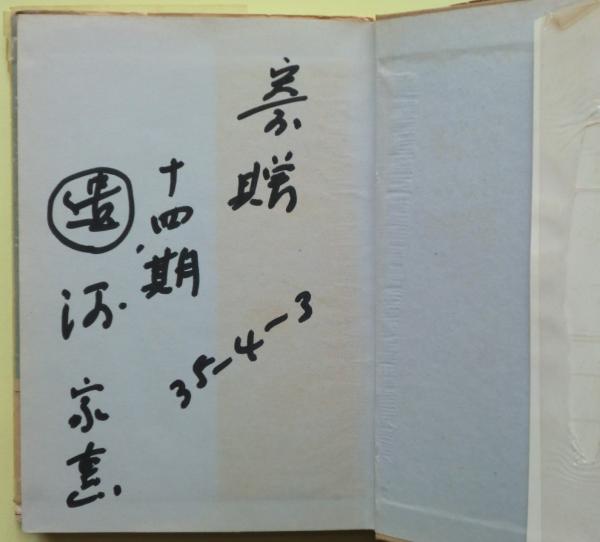 寄贈
35-4-3
十四期
河家